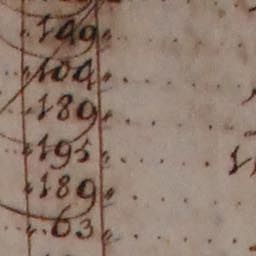 149
104
189
195
189
63